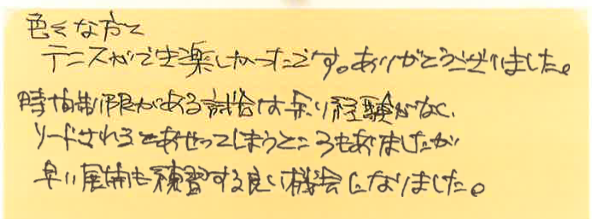 色々な方と
テニスができ楽しかったです。ありがとうございました。
時間制限がある試合は余り経験がなく、
リードされるとあせってしまうところもありましたが
早い展開も練習する良い機会になりました。